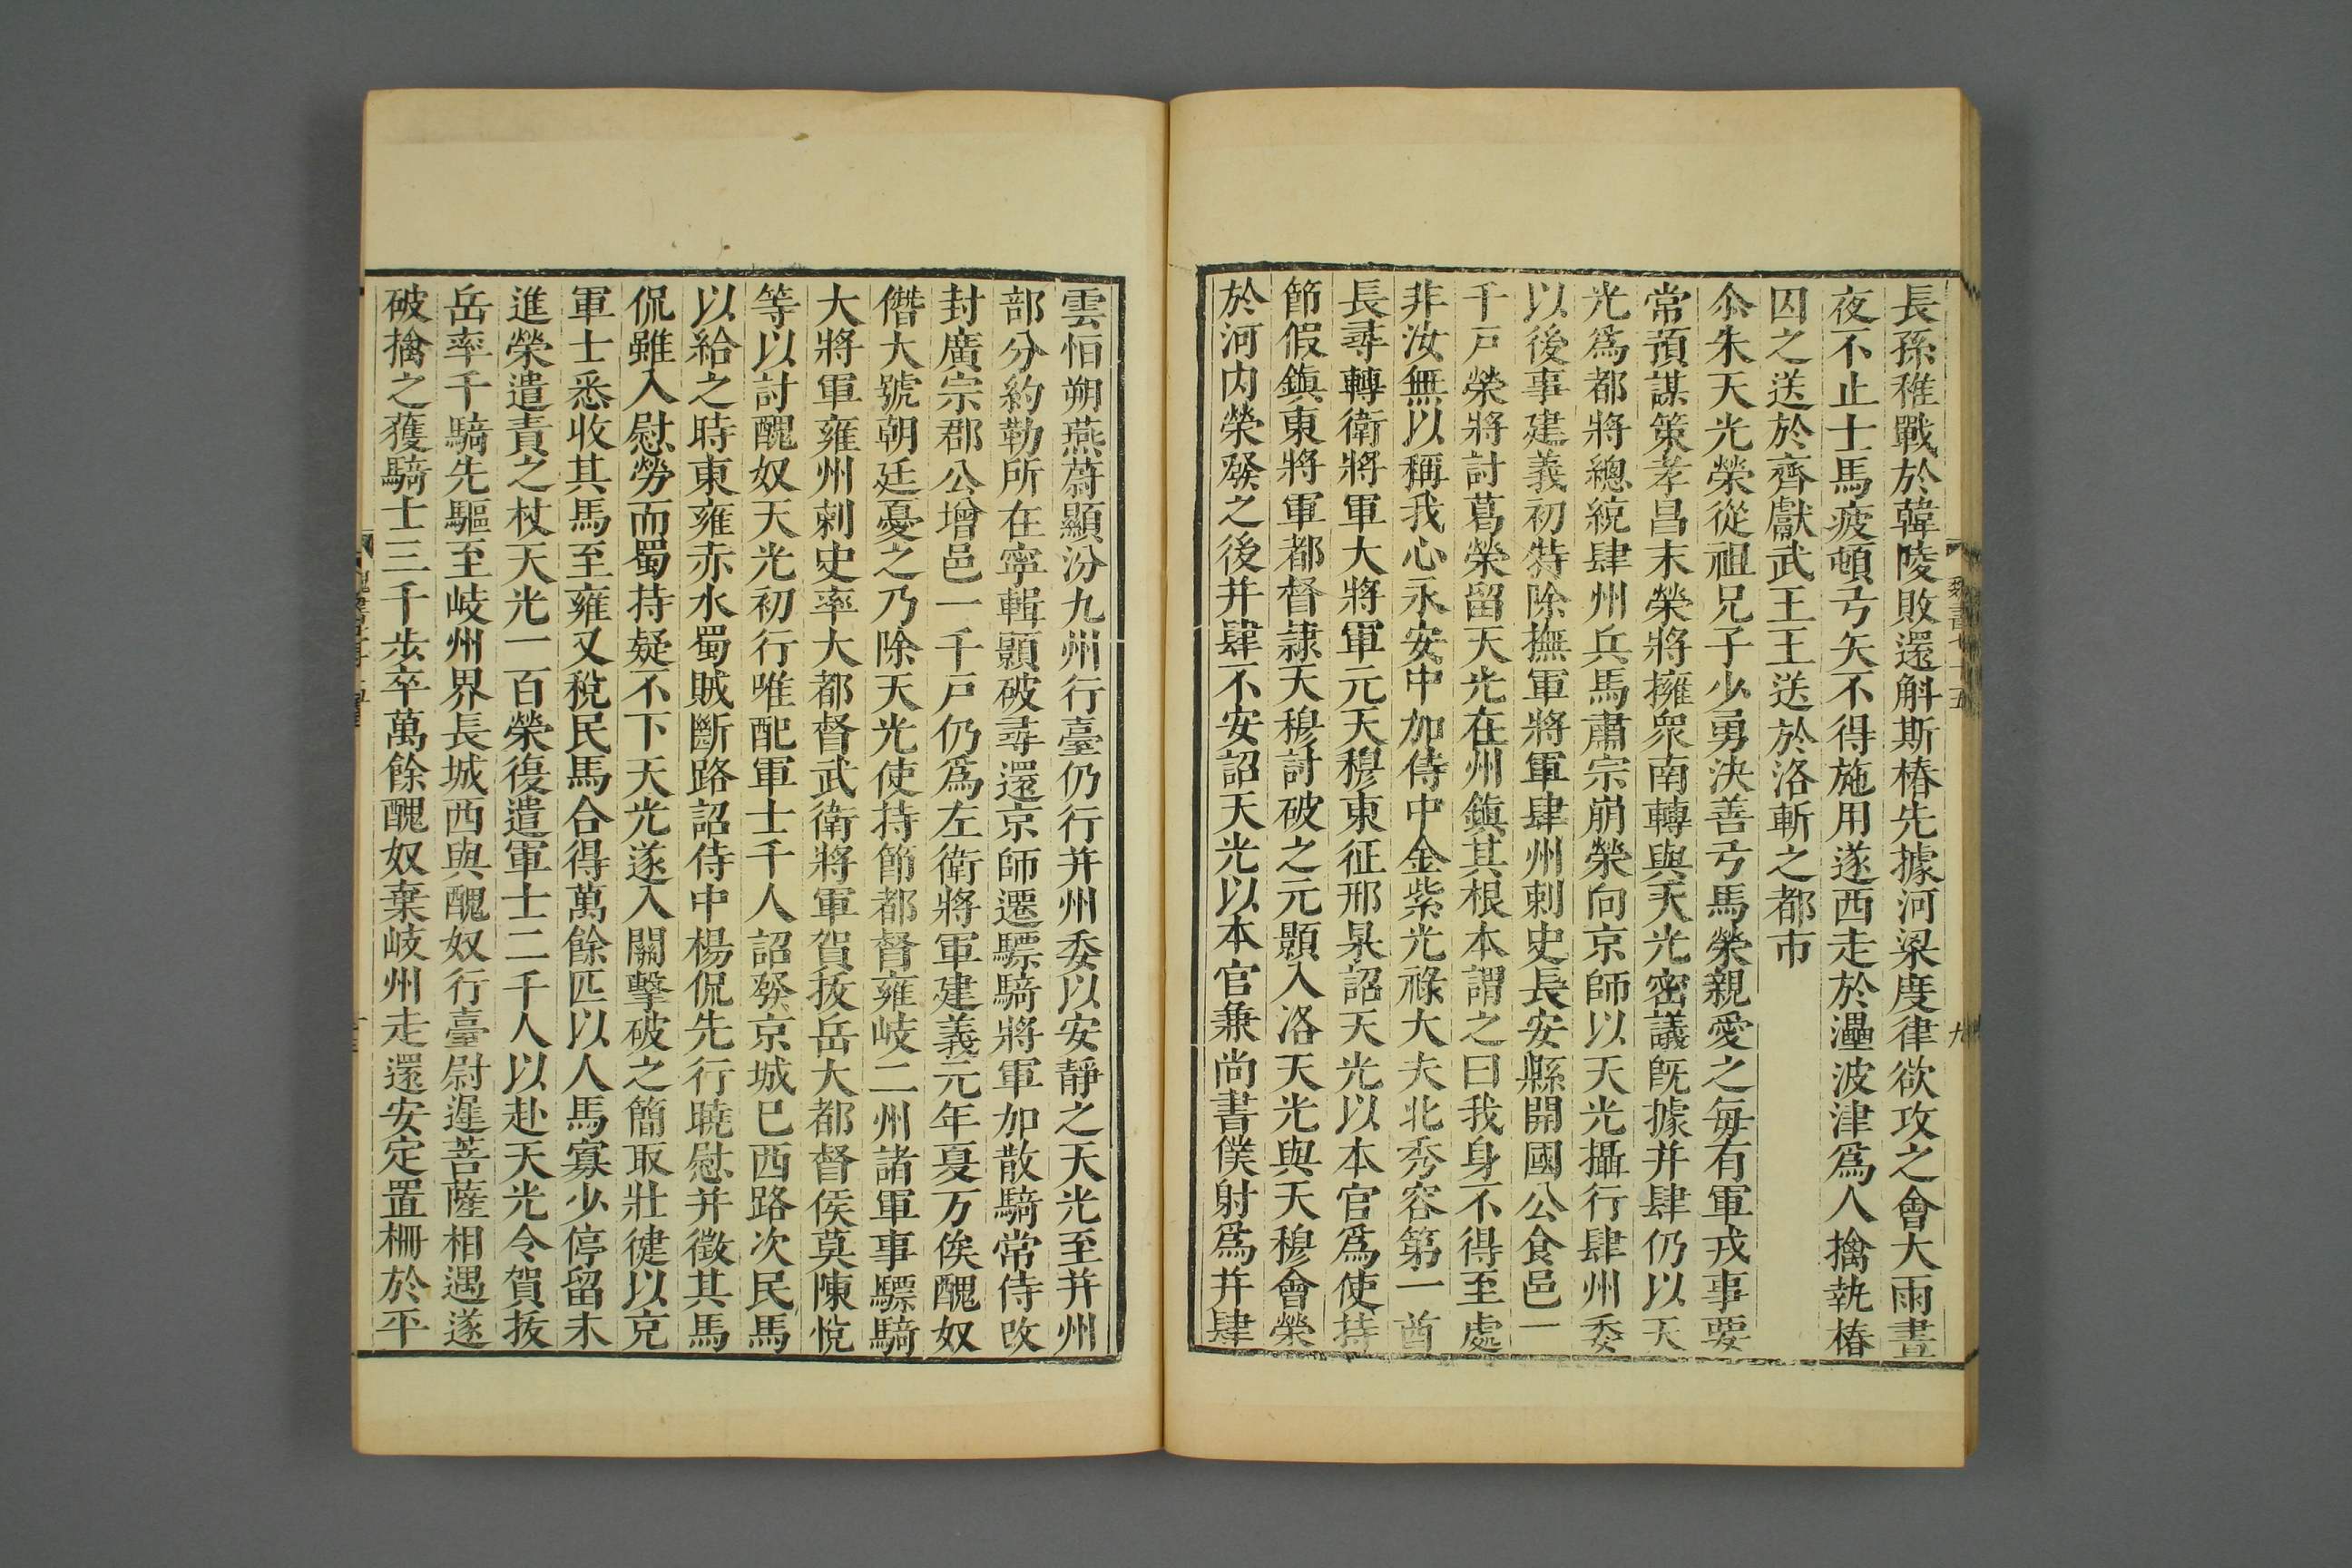 長孫稚戰於韓陵敗還斛斯椿先據河梁度律欲攻之會大雨晝
夜不止士馬疲頓弓矢不得施用遂西走於灅波津爲人擒執椿
囚之送於齊獻武王王送於洛斬之都市
尒朱天光榮從祖兄子少勇決善弓馬榮親愛之每有軍戎事要
常預謀策孝昌末榮將擁衆南轉與天光密議旣據并肆仍以天
光爲都將總統肆州兵馬肅宗崩榮向京師以天光攝行肆州委
以後事建義初特除撫軍將軍肆州刺史長安縣開國公食邑一
千戶榮將討葛榮留天光在州鎮其根本謂之曰我身不得至處
非汝無以稱我心永安中加侍中金紫光祿大夫北秀容第一酋
長尋轉衛將軍大將軍元天穆東征邢杲詔天光以本官爲使持
節假鎮東將軍都督隷天穆討破之元顥入洛天光與天穆會榮
於河內榮發之後并肆不安詔天光以本官兼尚書僕射爲并肆
魏書七十五
九
雲恒朔燕蔚顯汾九州行臺仍行并州委以安靜之天光至并州
部分約勒所在寧輯顥破尋還京師遷驃騎將軍加散騎常侍改
封廣宗郡公增邑一千戶仍爲左衛將軍建義元年夏万俟醜奴
僭大號朝廷憂之乃除天光使持節都督雍岐二州諸軍事驃騎
大將軍雍州刺史率大都督武衛將軍賀拔岳大都督侯莫陳悅
等以討醜奴天光初行唯配軍士千人詔發京城已西路次民馬
以給之時東雍赤水蜀賊斷路詔侍中楊侃先行曉慰并徵其馬
侃雖入慰勞而蜀持疑不下天光遂入關擊破之簡取壯健以充
軍士悉收其馬至雍又稅民馬合得萬餘匹以人馬寡少停留未
進榮遣責之杖天光一百榮復遣軍士二千人以赴天光令賀拔
岳率千騎先驅至岐州界長城西與醜奴行臺尉遲菩薩相遇遂
破擒之獲騎士三千步卒萬餘醜奴棄岐州走還安定置柵於平